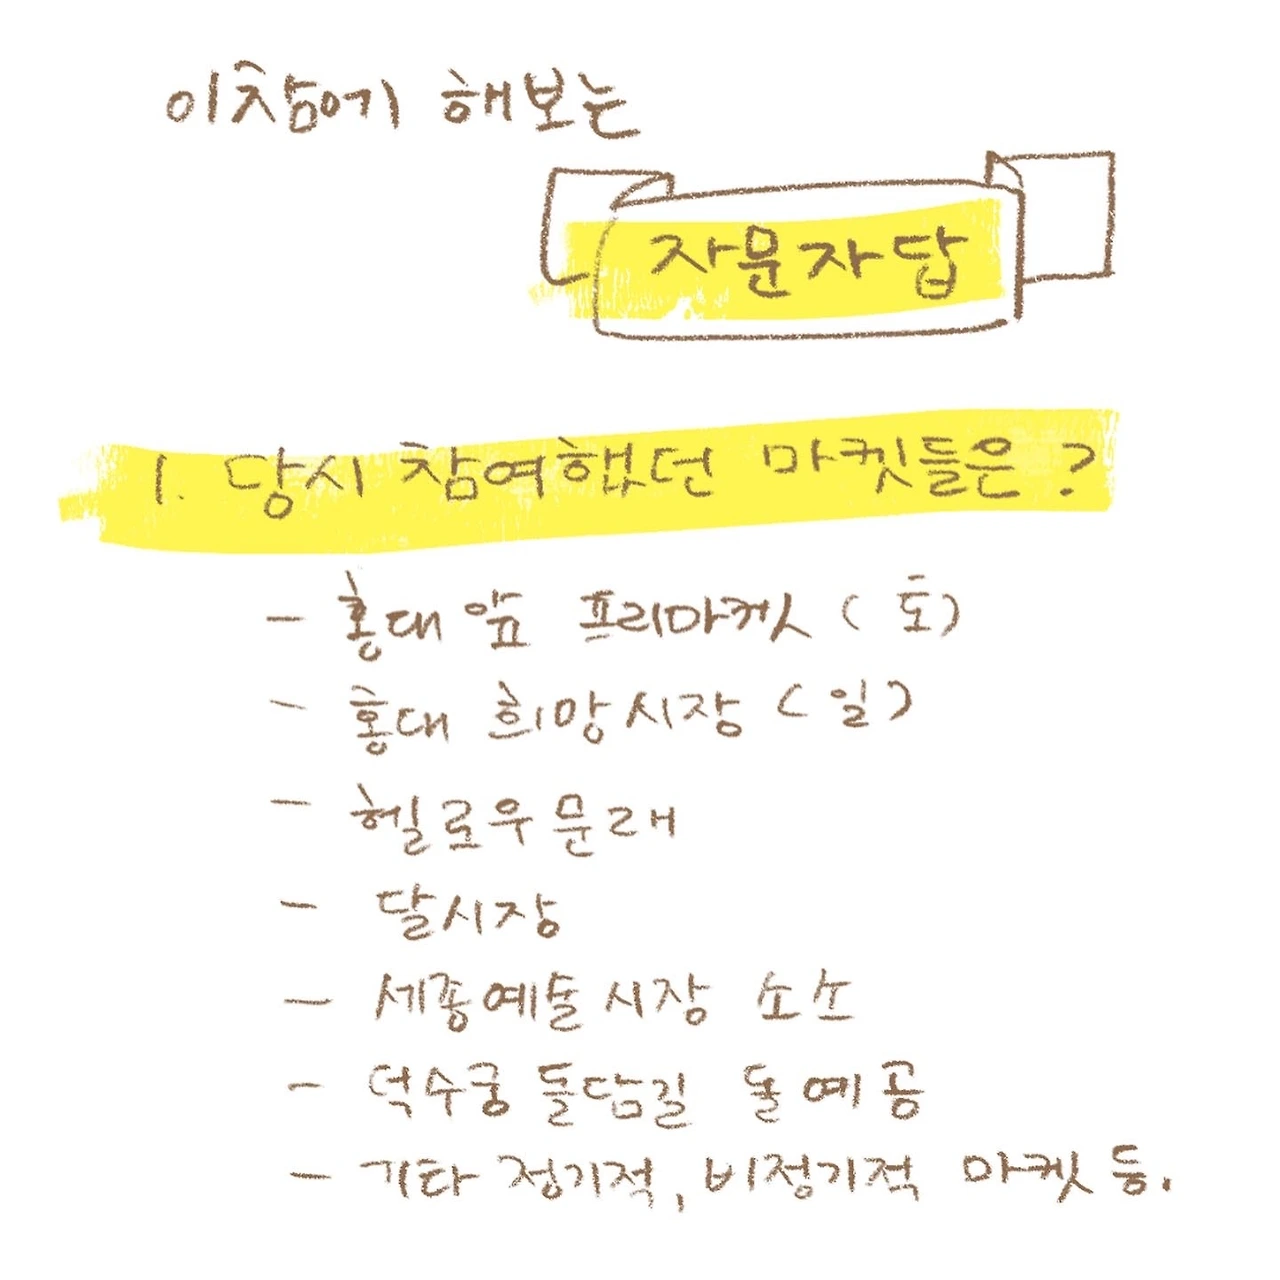 이참에 해보는
자문자답
1. 당시 참여했던 마켓들은?
- 홍대 앞 프리마켓 (토)
- 홍대 희망시장 (일)
- 헬로우문래
- 달시장
- 세종예술시장 소소
- 덕수궁 돌담길 돌예공
- 기타 정기적, 비정기적 마켓 등.